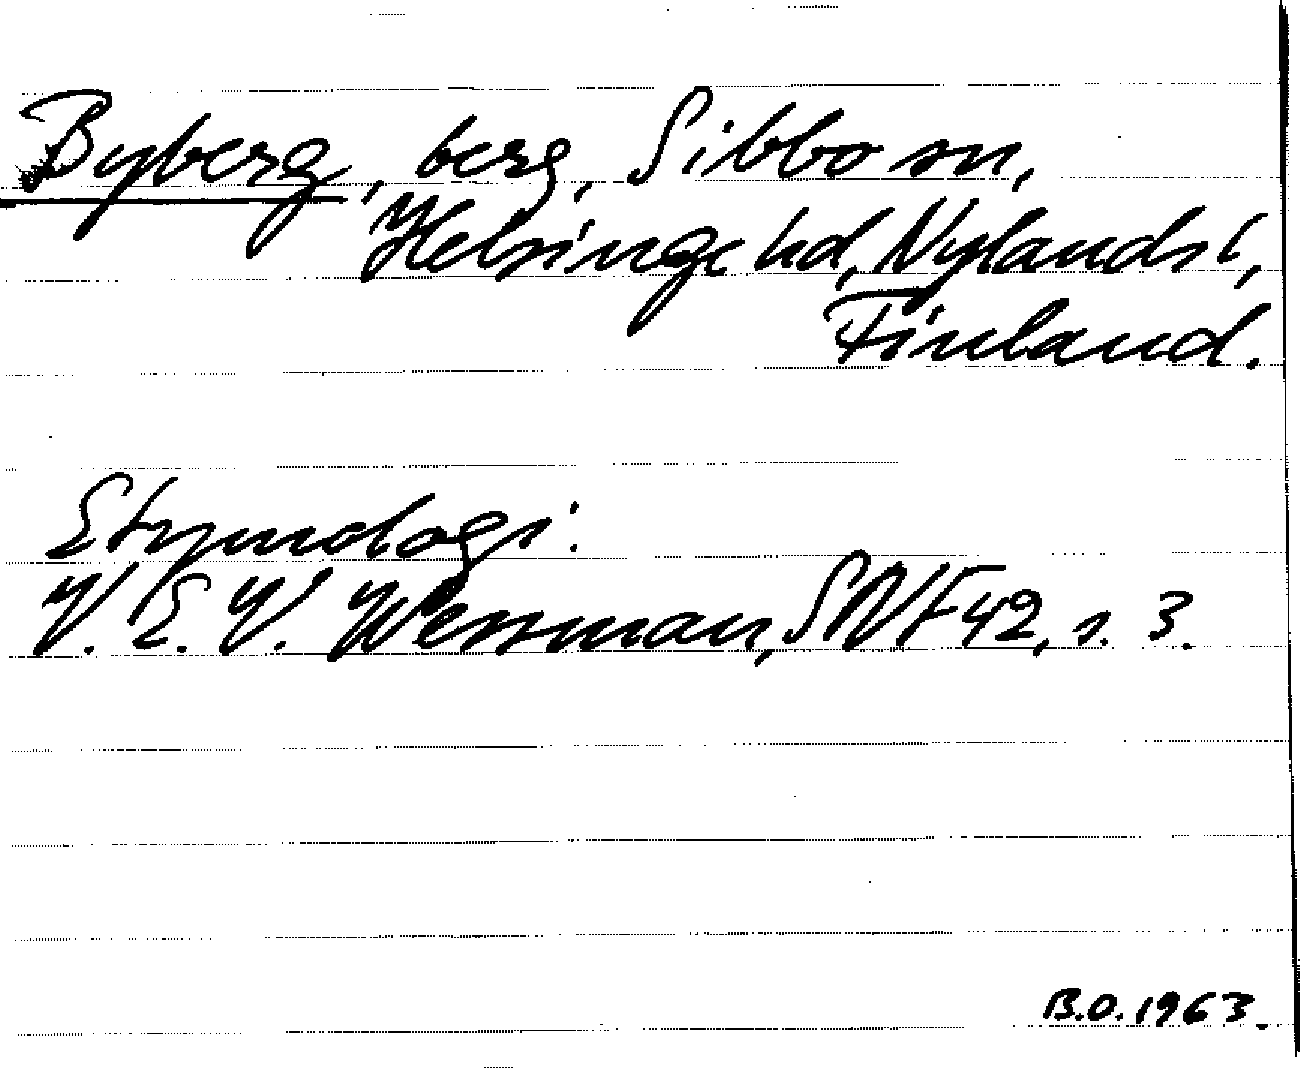 Byberg, berg, Sibbo sn,
Helsinge hd, Nylands l,
Finland.
Etymologi:
V. E. V. Wessman, SNF 42, s. 3.
B.O. 1963.